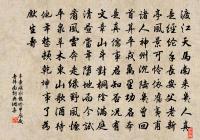 渡江天馬南來幾人真
是經綸手長安父老新
亭風景可憐依舊夷甫
諸人神州沉陸幾曾回
首算平戎萬里功名本
是真儒事君知否況有
文章山斗對桐陰滿庭
清晝當年墮地而今試
看風雲奔走綠野風煙
平泉草木東山歌酒待
他年整頓乾坤事了為
先生壽